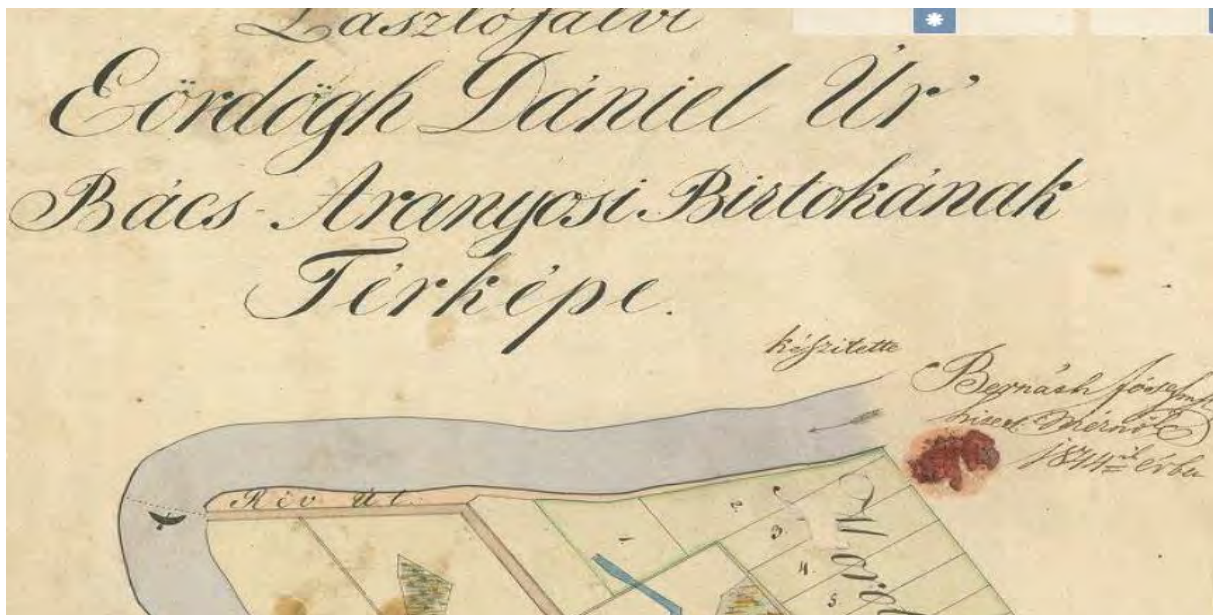 Lászlófalvi
Eördögh Dániel Úr'
Bács-Aranyosi Birtokának
Térképe.
készitette
Bernáth
mérnök
1844
Rév Út
1
2.
3.
4.
5.